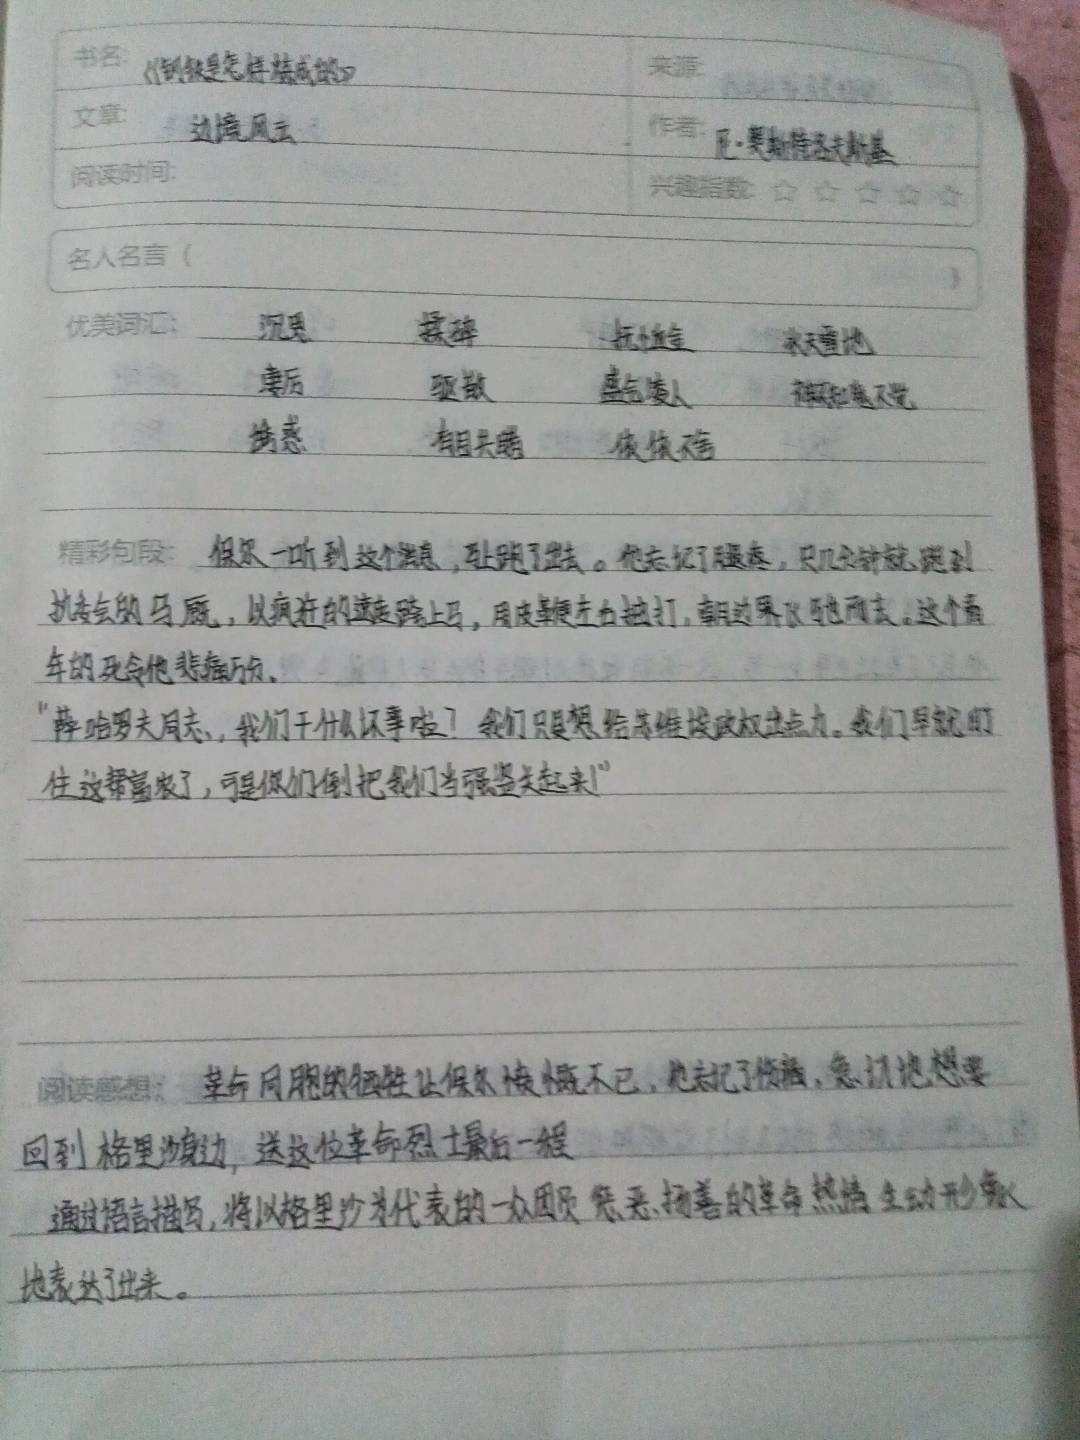 书名: 《钢铁是怎样炼成的》 来源:
文章: 边境风云 作者: 尼·奥斯特洛夫斯基
阅读时间: 兴趣指数: ☆ ☆ ☆ ☆ ☆
名人名言 ( )
优美词汇: 沉思 揉碎 抚恤金 冰天雪地
凄厉 驱散 盛气凌人 神不知鬼不觉
诱惑 有目共睹 依依不舍
精彩句段: 保尔一听到这个消息,跑了出去。他忘记了腿疼,只几分钟就跑到
执委会的马厩,以疯狂的速度跨上马,用皮鞭左右抽打,朝边界飞驰而去。这个青
年的死令他悲痛万分.
"薛哈罗夫同志,我们干什么坏事啦?我们只是想给苏维埃政权出点力。我们早就盯
住这帮富农了,可是你们倒把我们当强盗关起来!"
阅读感想: 革命同胞的牺牲让保尔愤慨不已,他忘记了伤痛,急切地想要
回到格里沙身边,送这位革命烈士最后一程
通过语言描写,将以格里沙为代表的一众团员惩恶扬善的革命热情生动形象
地表达了出来。